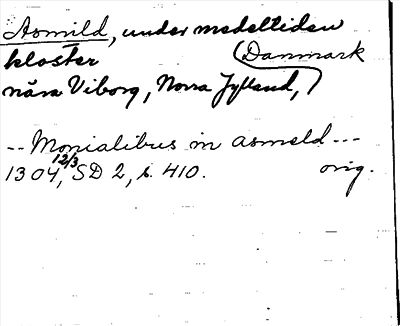 Asmild, under medeltiden
kloster (Danmark
nära Viborg, Norra Jylland,)
-- Monialibus in asmeld ---
1304 12/3, SD 2, s. 410. orig.